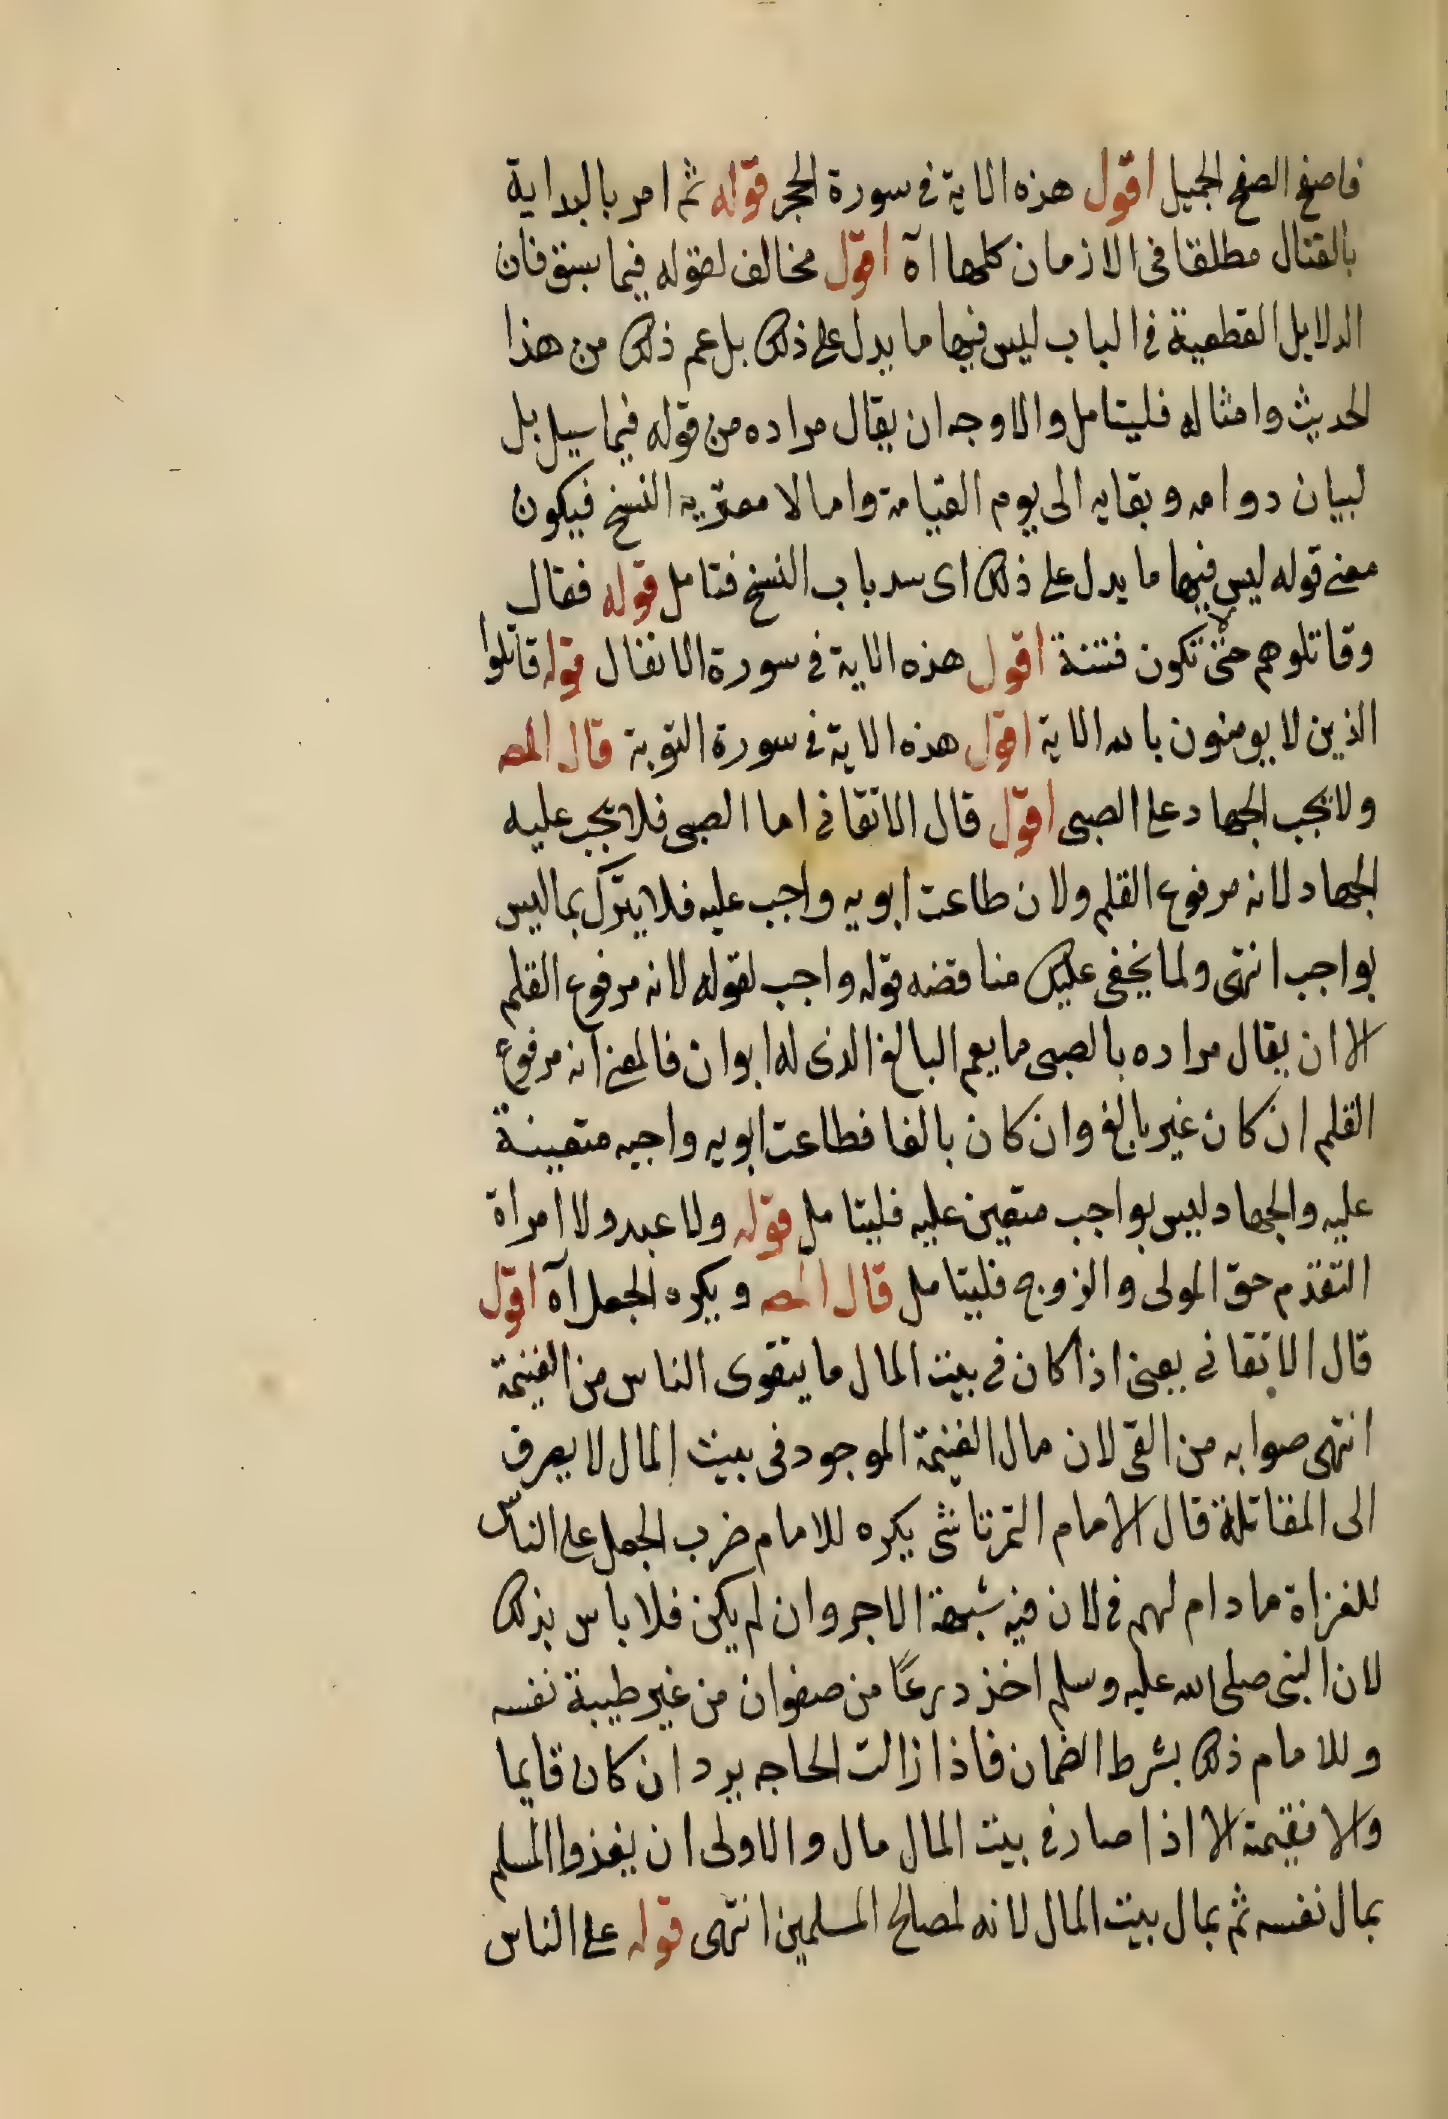 فاصفح الصفح الجميل اقول هذه الاية فى سورة الحجر قوله ثم امر بالبداية
بالقتال مطلقا فى الازمان كلها اه اقول مخالف لقوله فيما سبق فان
الدلايل القطعية فى الباب ليس فيها ما يدل على ذلك بل عم ذلك من هذا
الحديث وامثاله فليتامل والاوجه ان يقال مراده من قوله فيما سيل بل
لبيان دوامه وبقايه الى يوم القيامة واما لا معتريه النسخ فيكون
معنى قوله ليس فيها ما يدل على ذلك اى سد باب النسخ فتامل قوله فقال
وقاتلوهم حتى لا تكون فتنة اقول هذه الاية فى سورة الانفال قوله قاتلوا
الذين لا يومنون بالله الاية اقول هذه الاية فى سورة التوبة قال المصـ
ولا يجب الجهاد على الصبى اقول قال الاتقانى اما الصبى فلا يجب عليه
الجهاد لانه مرفوع القلم ولان طاعت ابويه واجب عليه فلا يترك بما ليس
بواجب انتهى ولما يخفى عليك مناقضه قوله واجب لقوله لانه مرفوع القلم
الا ان يقال مراده بالصبى ما يعم البالغ الذى له ابوان فالمعنى انه مرفوع
القلم ان كان غير بالغ وان كان بالغا فطاعت ابويه واجبه متعينة
عليه والجهاد ليس بواجب متعين عليه فليتامل قوله ولا عبد ولا امراة
التقدم حق المولى والزوج فليتامل قال المصـ ويكره الجعل اه اقول
قال الاتقانى يعنى اذا كان فى بيت المال ما يتقوى الناس من الغنيمة
انتهى صوابه من الفى لان مال الغنيمة الموجود فى بيت المال لا يصرف
الى المقاتلة قال الامام التمرتاشى يكره للامام ضرب الجعل على الناس
للغزاة ما دام لهم فى لان فيه شبهة الاجر وان لم يكن فلا باس بذلك
لان النبى صلى الله عليه وسلم اخذ درعا من صفوان من غير طيبة نفسه
وللامام ذلك بشرط الضمان فاذا زالت الحاجه يرد ان كان قايما
والا فقيمته الا اذا صار فى بيت المال مال والاولى ان يغزوا المسلم
بمال نفسه ثم بمال بيت المال لانه لمصالح المسلمين انتهى قوله على الناس